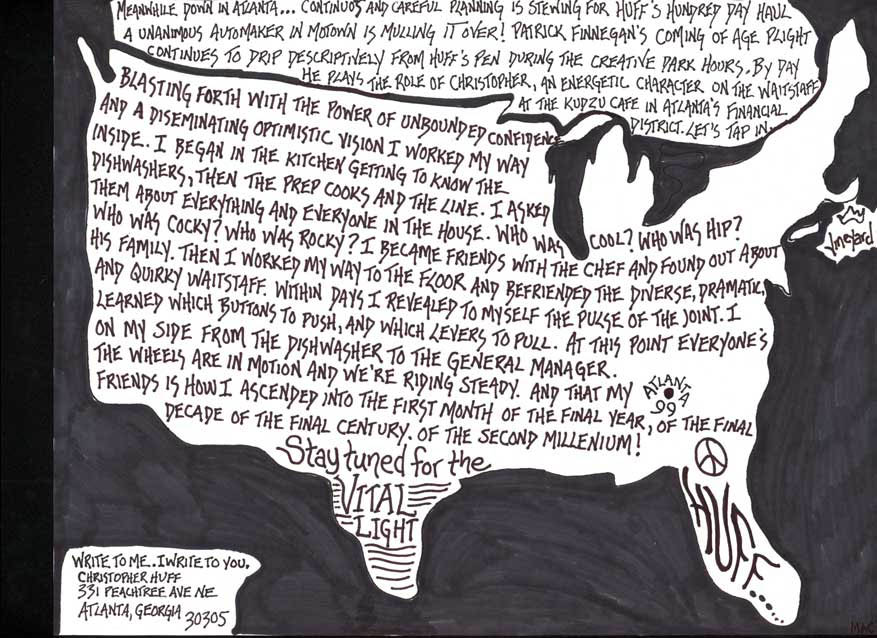 MEANWHILE DOWN IN ATLANTA... CONTINUOS AND CAREFUL PLANNING IS STEWING FOR HUFF'S HUNDRED DAY HAUL
A UNANIMOUS AUTOMAKER IN MOTOWN IS MULLING IT OVER! PATRICK FINNEGAN'S COMING OF AGE PLIGHT
CONTINUES TO DRIP DESCRIPTIVELY FROM HUFF'S PEN DURING THE CREATIVE PARK HOURS. BY DAY
HE PLAYS THE ROLE OF CHRISTOPHER, AN ENERGETIC CHARACTER ON THE WAITSTAFF
AT THE KUDZU CAFE IN ATLANTA'S FINANCIAL
DISTRICT. LET'S TAP IN...
BLASTING FORTH WITH THE POWER OF UNBOUNDED CONFIDENCE
AND A DISEMINATING OPTIMISTIC VISION I WORKED MY WAY
INSIDE. I BEGAN IN THE KITCHEN GETTING TO KNOW THE
DISHWASHERS, THEN THE PREP COOKS AND THE LINE. I ASKED
THEM ABOUT EVERYTHING AND EVERYONE IN THE HOUSE. WHO WAS COOL? WHO WAS HIP?
WHO WAS COCKY? WHO WAS ROCKY? I BECAME FRIENDS WITH THE CHEF AND FOUND OUT ABOUT
HIS FAMILY. THEN I WORKED MY WAY TO THE FLOOR AND BEFRIENDED THE DIVERSE, DRAMATIC,
AND QUIRKY WAITSTAFF. WITHIN DAYS I REVEALED TO MYSELF THE PULSE OF THE JOINT. I
LEARNED WHICH BUTTONS TO PUSH, AND WHICH LEVERS TO PULL. AT THIS POINT EVERYONE'S
ON MY SIDE FROM THE DISHWASHER TO THE GENERAL MANAGER.
THE WHEELS ARE IN MOTION AND WE'RE RIDING STEADY. AND THAT MY
FRIENDS IS HOW I ASCENDED INTO THE FIRST MONTH OF THE FINAL YEAR, OF THE FINAL
DECADE OF THE FINAL CENTURY. OF THE SECOND MILLENIUM!
ATLANTA
99
Vineyard
Stay tuned for the
VITAL
LIGHT
HUFF...
WRITE TO ME.. I WRITE TO YOU.
CHRISTOPHER HUFF
331 PEACHTREE AVE NE
ATLANTA, GEORGIA 30305
MAC